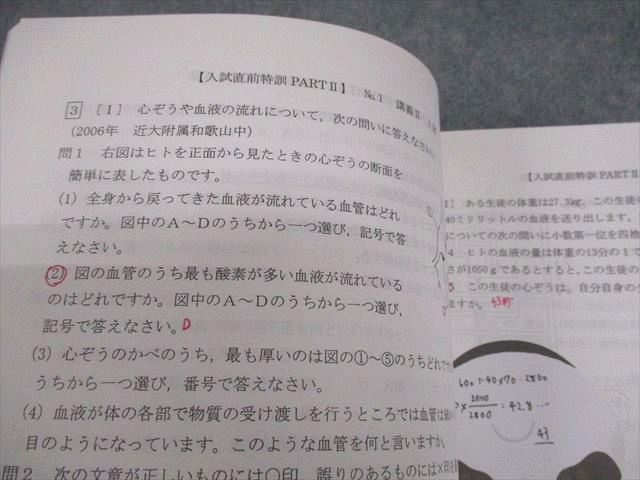 【入試直前特訓 PARTⅡ】 №1 講義Ⅱ
3 [Ⅰ] 心ぞうや血液の流れについて，次の問いに答えなさい。
(2006年 近大附属和歌山中)
問1 右図はヒトを正面から見たときの心ぞうの断面を
簡単に表したものです。
(1) 全身から戻ってきた血液が流れている血管はどれ
ですか。図中のA～Dのうちから一つ選び，記号で答
えなさい。
(2) 図の血管のうち最も酸素が多い血液が流れている
のはどれですか。図中のA～Dのうちから一つ選び，
記号で答えなさい。D
(3) 心ぞうのかべのうち，最も厚いのは図の①～⑤のうちどれですか
うちから一つ選び，番号で答えなさい。
(4) 血液が体の各部で物質の受け渡しを行うところでは血管は
目のようになっています。このような血管を何と言いますか。
問2 次の文章が正しいものには○印，誤りのあるものには×印を
【入試直前特訓 PARTⅡ
] ある生徒の体重は27.3kg，この生徒の
40ミリリットルの血液を送り出します。
についての次の問いに小数第一位を四捨
4 ヒトの血液の量は体重の13分の1で
さが1050gであるとすると，この生徒の
5 この生徒の心ぞうは，自分自身の
ますか。43秒
2800
× 2000/2800 = 42.8…
43